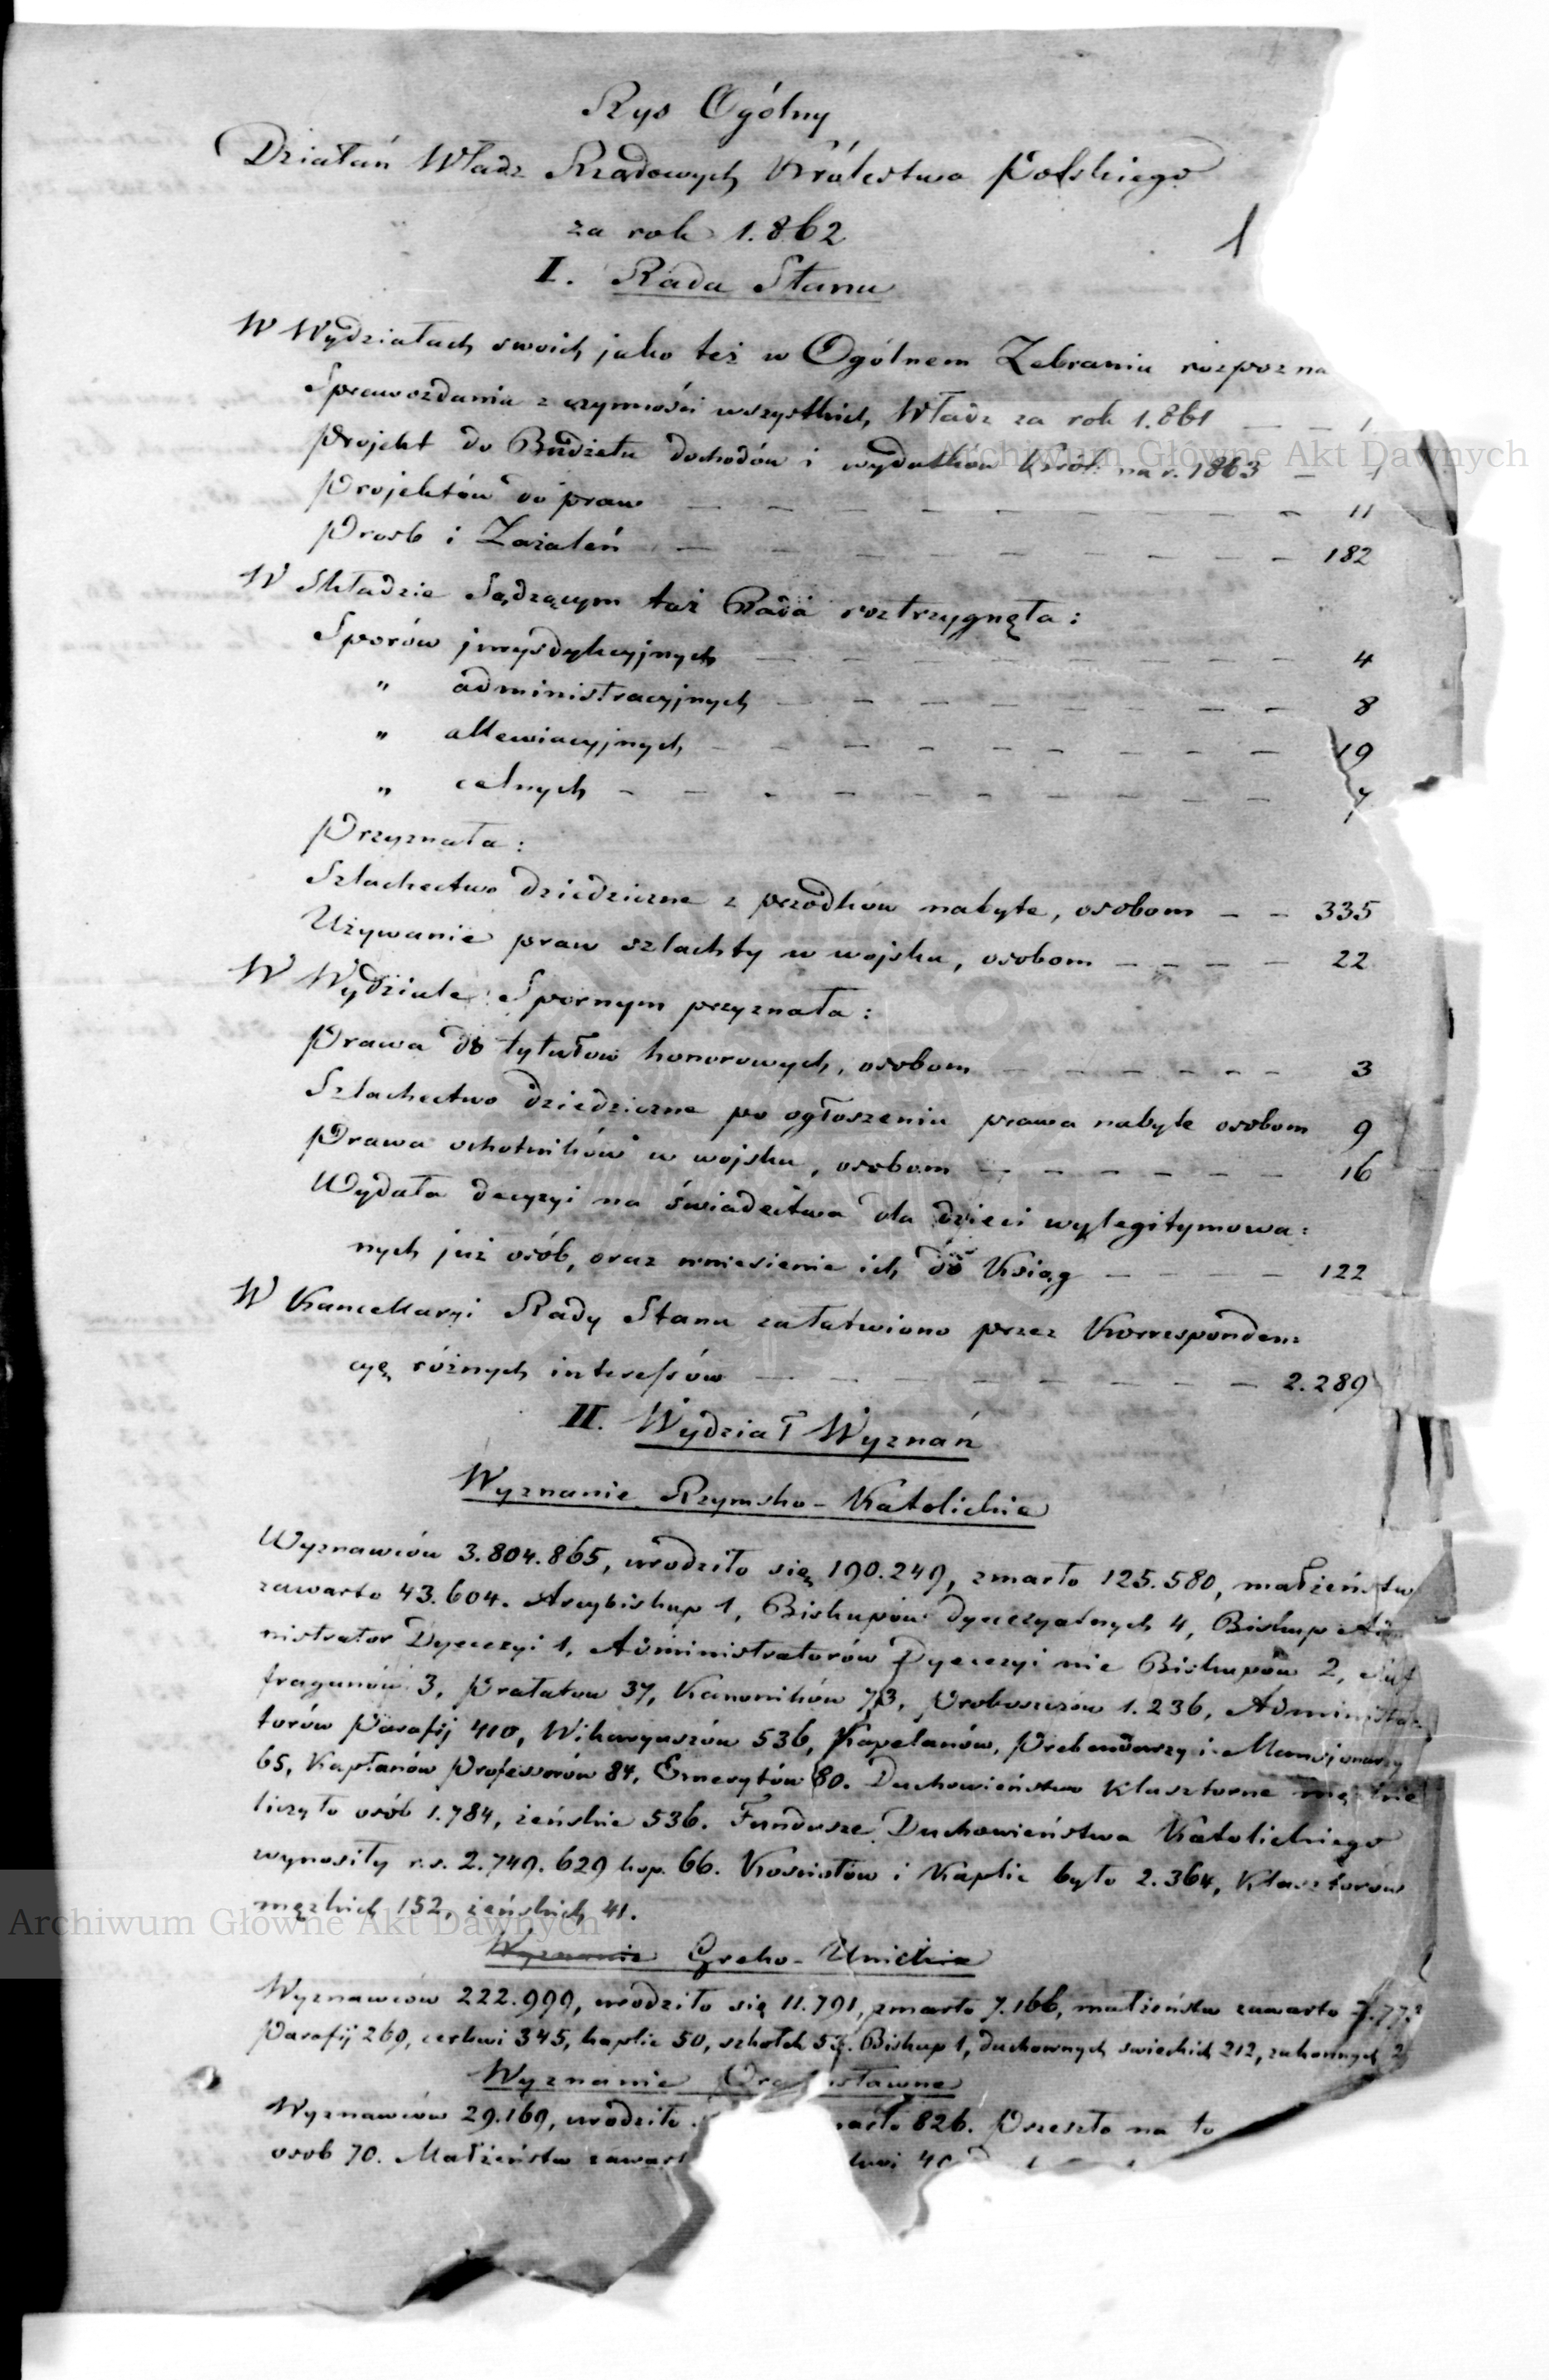 Rys Ogólny
Działań Władz Rządowych Królestwa Polskiego
za rok 1.862
1
I. Rada Stanu
W Wydziałach swoich jako też w Ogólnem Zebraniu rozpozna
Sprawozdania z czynności wszystkich Władz za rok 1.861 — — 1
Projekt do Budżetu dochodów i wydatków Król: na r. 1863 — 1
Projektów do praw — — — — — — — — — — 11
Prosb i Zażaleń — — — — — — — — — 182
W Składzie Sądzącym taż Rada roztrzygnęła:
Sporów jurysdykcyjnych — — — — — — — — — 4
" administracyjnych — — — — — — — — — 8
" allewiacyjnych — — — — — — — — — 19
" celnych — — — — — — — — — — 7
Przyznała:
Szlachectwo dziedziczne z przodków nabyte, osobom — — 335
Używanie praw szlachty w wojsku, osobom — — — — 22
W Wydziale Spornym przyznała:
Prawa do tytułow honorowych, osobom — — — — — — 3
Szlachectwo dziedziczne po ogłoszeniu prawa nabyte osobom 9
Prawa ochotników w wojsku, osobom — — — — — — 16
Wydała decyzyi na świadectwa dla dzieci wylegitymowa:
nych już osób, oraz wniesienie ich do Ksiąg — — — — 122
W Kancellaryi Rady Stanu załatwiono przez Korresponden:
cyę różnych interessów — — — — — — — — — 2.289
II. Wydział Wyznań
Wyznanie Rzymsko-Katolickie
Wyznawców 3.804.865, urodziło się 190.249, zmarło 125.580, małżeństw
zawarto 43.604. Arcybiskup 1, Biskupów dyecezyalnych 4, Biskup Admi
nistrator Dyecezyi 1, Administratorów Dyecezyi nie Biskupów 2, Suf
fraganów 3, Prałatow 37, Kanoników 73, Proboszczów 1.236, Administra
torów Parafij 410, Wikaryuszów 536, Kapelanów, Prebendarzy i Mansjonarzy
65, Kapłanów Professorów 84, Emerytów 80. Duchowieństwo Klasztorne męzkie
liczyło osób 1.784, żeńskie 536. Fundusze Duchowieństwa Katolickiego
wynosiły r.s. 2.749.629 kop. 66. Kościołów i Kaplic było 2.364, Klasztorów
męzkich 152, żeńskich 41.
Wyznanie Greko-Unickie
Wyznawców 222.999, urodziło się 11.791, zmarło 7.166, małżeństw zawarto 2.773
Parafij 269, cerkwi 345, kaplic 50, szkołek 53. Biskup 1, duchownych swieckich 212, zakonnych
Wyznanie Pra sławne
Wyznawców 29.169, urodziło marło 826. Przeszło na to
osob 70. Małżeństw zawart kwi 40
Archiwum Główne Akt Dawnych
Archiwum Główne Akt Dawnych